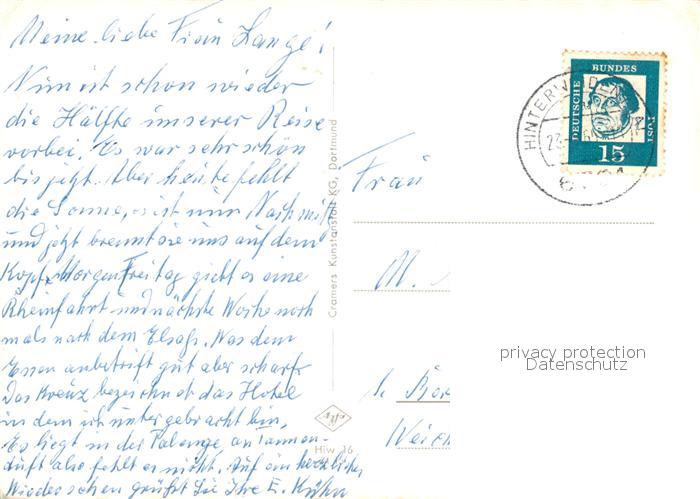 Meine liebe Frau Lange!
Nun ist schon wieder
die Hälfte unserer Reise
vorbei. Es war sehr schön
bis jetzt. Aber heute fehlt
die Sonne, es ist nur Nachmitt
und jetzt brennt sie uns auf dem
Kopf. Morgen Freitag giebt es eine
Rheinfahrt und nächste Woche noch
mals nach dem Elsaß. Was dem
Essen anbetrift gut aber scharf.
Das Kreuz bezeichnet das Hotel
in dem ich untergebracht bin,
Es liegt in der Talenge an Tannen-
duft also fehlt es nicht. Auf ein herzliches
Wiedersehen grüßt Sie Ihre E. Kühn
Cramers Kunstanstalt KG, Dortmund
Hiw 16
DEUTSCHE BUNDES POST
15
HINTER
Frau
M.
privacy protection
Datenschutz